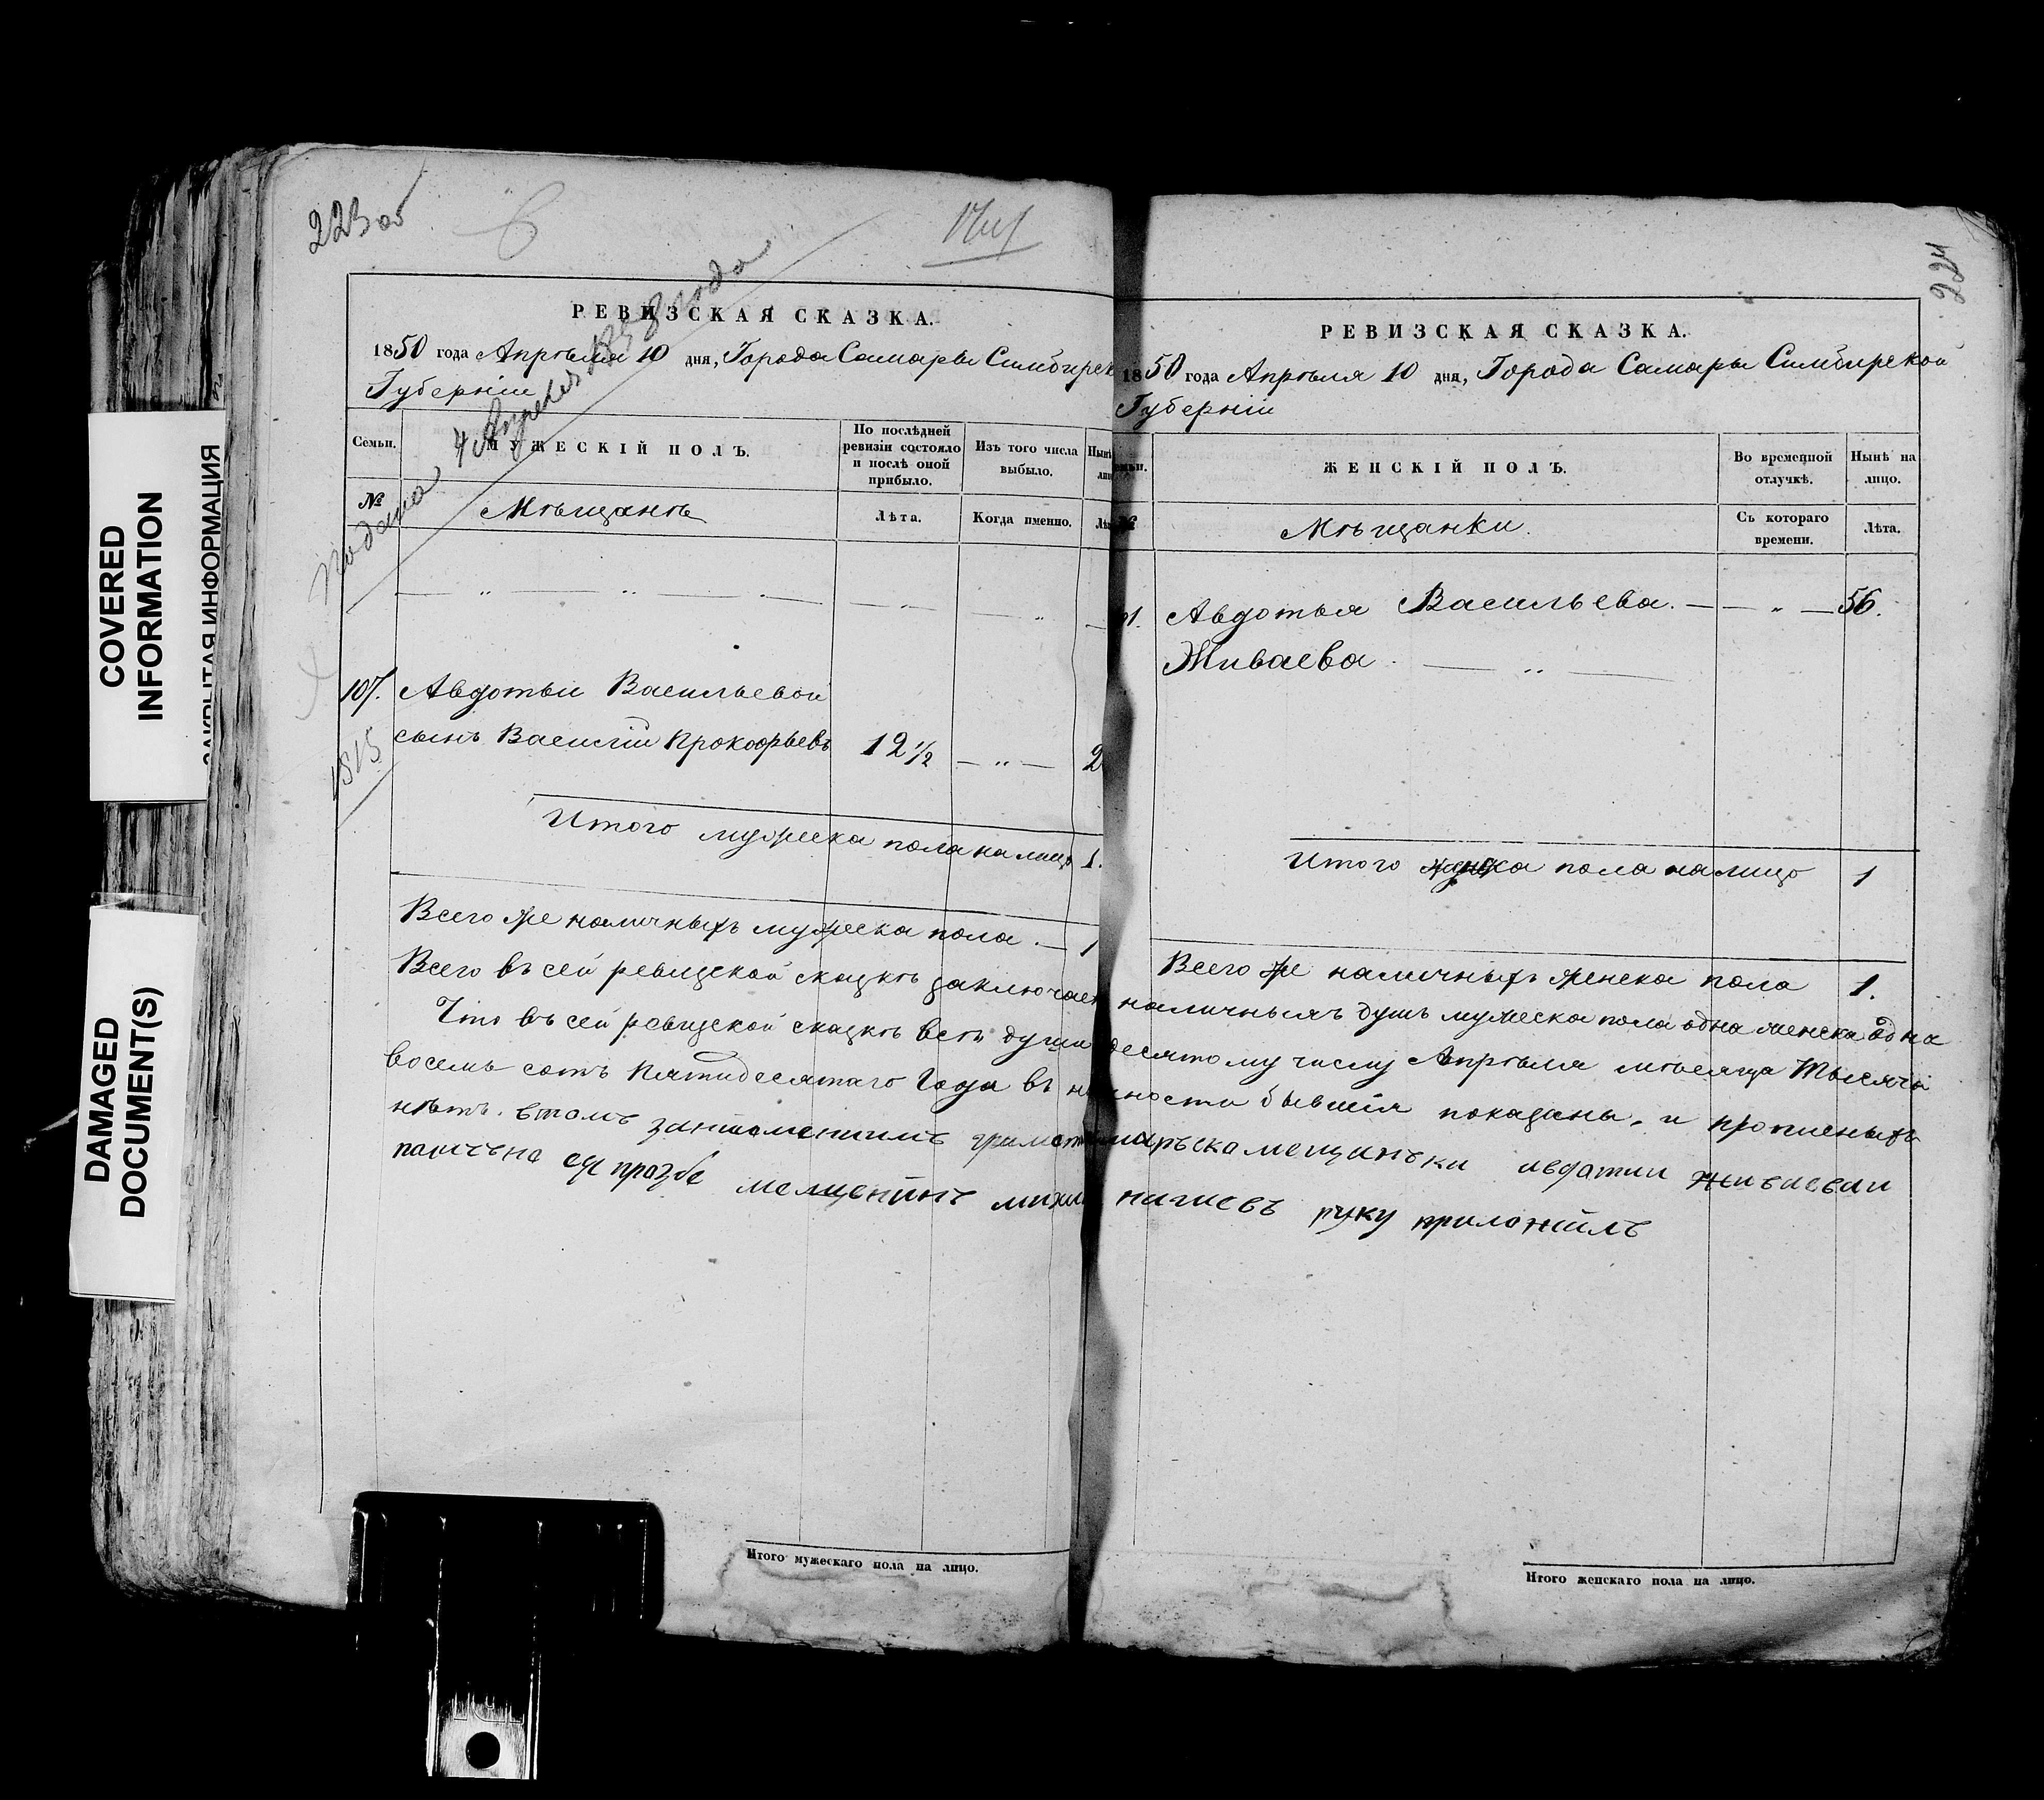 COVERED
INFORMATION
ЗАКРЫТАЯ ИНФОРМАЦИЯ
DAMAGED
DOCUMENT(S)
223 об
РЕВИЗСКАЯ СКАЗКА.
1850 года Апрѣля 10 дня, Города Самары Симбирск
Губерніи
Подана 4 Апреля года
Семьи.
МУЖЕСКІЙ ПОЛЪ.
По послѣдней ревизіи состояло и послѣ оной прибыло.
Изъ того числа выбыло.
Нынѣ
№
Мѣщанъ
Лѣта.
Когда именно.
107. Авдотьи Васильевой
сынъ Василій Прокофьевъ 12 1/2 — „ — 2
1815
Итого мужеска пола на лицо 1.
Всего же наличныхъ мужеска пола . — 1
Итого мужескаго пола на лицо.
224
РЕВИЗСКАЯ СКАЗКА.
1850 года Апрѣля 10 дня, Города Самары Симбирской
Губерніи
ЖЕНСКІЙ ПОЛЪ.
Во временной отлучкѣ.
Нынѣ на лицо.
№
Мѣщанки.
Съ котораго времени.
Лѣта.
Авдотья Васильева. — — „ — 56.
Живаева
Итого женска пола на лицо 1
Всего же наличныхъ женска пола 1.
Всего въ сей ревизской сказкѣ заключает наличныхъ душъ мужеска пола одна женска одна
Что въ сей ревизской сказкѣ всѣ души десятому числу Апрѣля мѣсяца Тысяча
восемь сотъ Пятидесятаго Года въ н ности бывшія показаны, и прописныхъ
нѣтъ. втомъ мещанъки авдатии живаеваи
ея прозбе мещенинъ руку приложилъ
Итого женскаго пола на лицо.